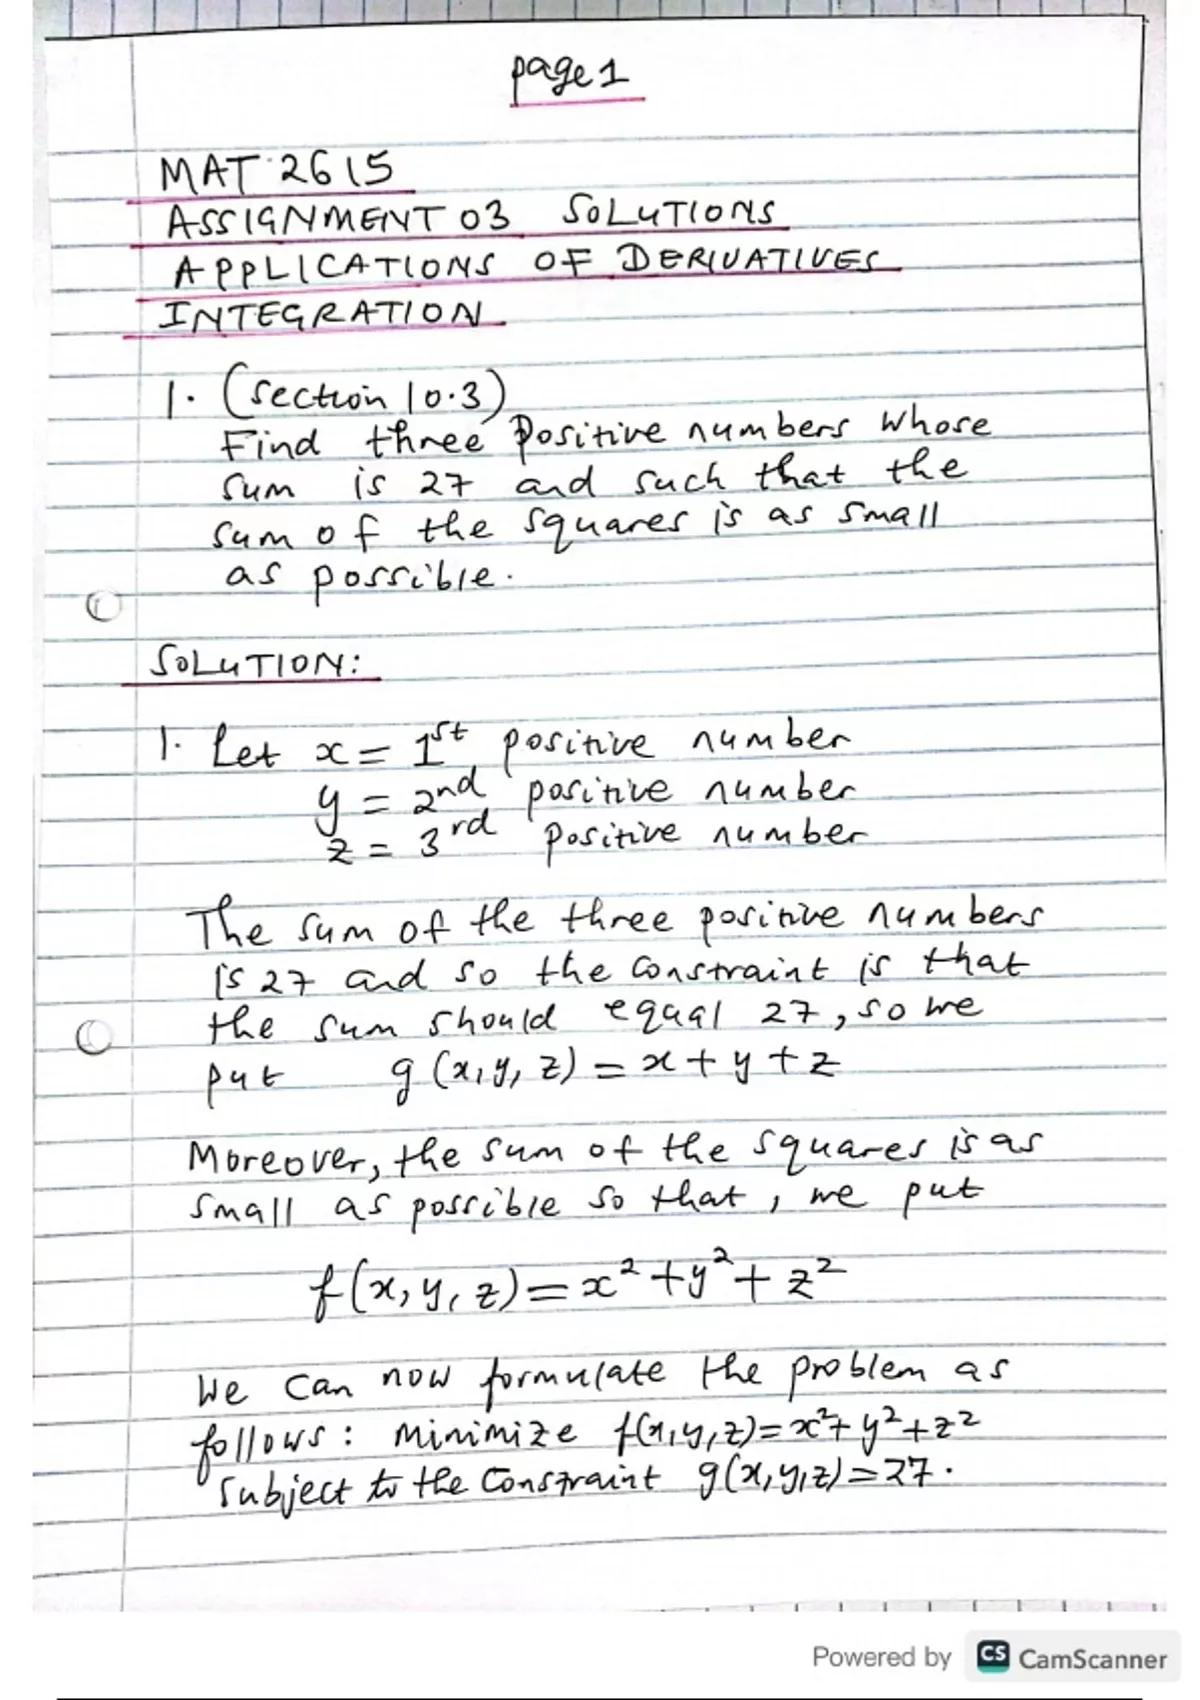 page 1
MAT 2615
ASSIGNMENT 03 SOLUTIONS
APPLICATIONS OF DERIVATIVES
INTEGRATION
1. (section 10.3)
Find three Positive numbers whose
sum is 27 and such that the
sum of the squares is as small
as possible.
SOLUTION:
1. Let x = 1st positive number
y = 2nd positive number
z = 3rd positive number
The sum of the three positive numbers
is 27 and so the constraint is that
the sum should equal 27, so we
put g(x,y,z) = x + y + z
Moreover, the sum of the squares is as
small as possible so that, we put
f(x,y,z) = x² + y² + z²
We can now formulate the problem as
follows: minimize f(x,y,z) = x² + y² + z²
subject to the constraint g(x,y,z) = 27.
Powered by CS CamScanner